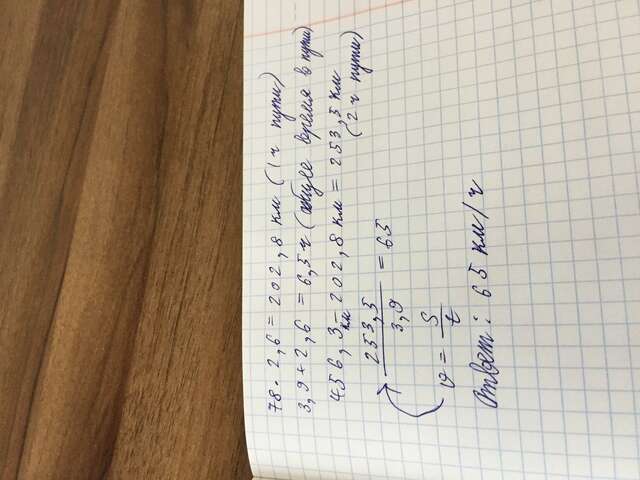 78 · 2,6 = 202,8 км (1 ч пути)
3,9 + 2,6 = 6,5 ч (общее время в пути)
456,3 км - 202,8 км = 253,5 км
(2 ч пути)
253,5 / 3,9 = 65
v = S / t
Ответ: 65 км/ч